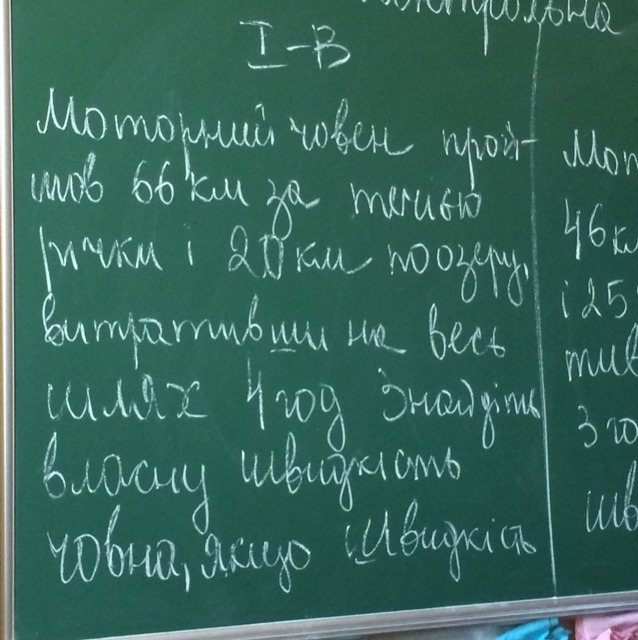 контрольна
I-В
Моторний човен прой-
шов 66 км за течією
річки і 20 км по озеру,
витративши на весь
шлях 4 год Знайдіть
власну швидкість
човна, якщо Швидкість
46 км
і 25
3 го